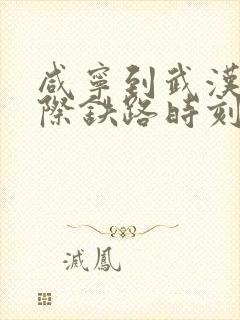 咸寧到武漢
際鉄路時刻
滅鳳